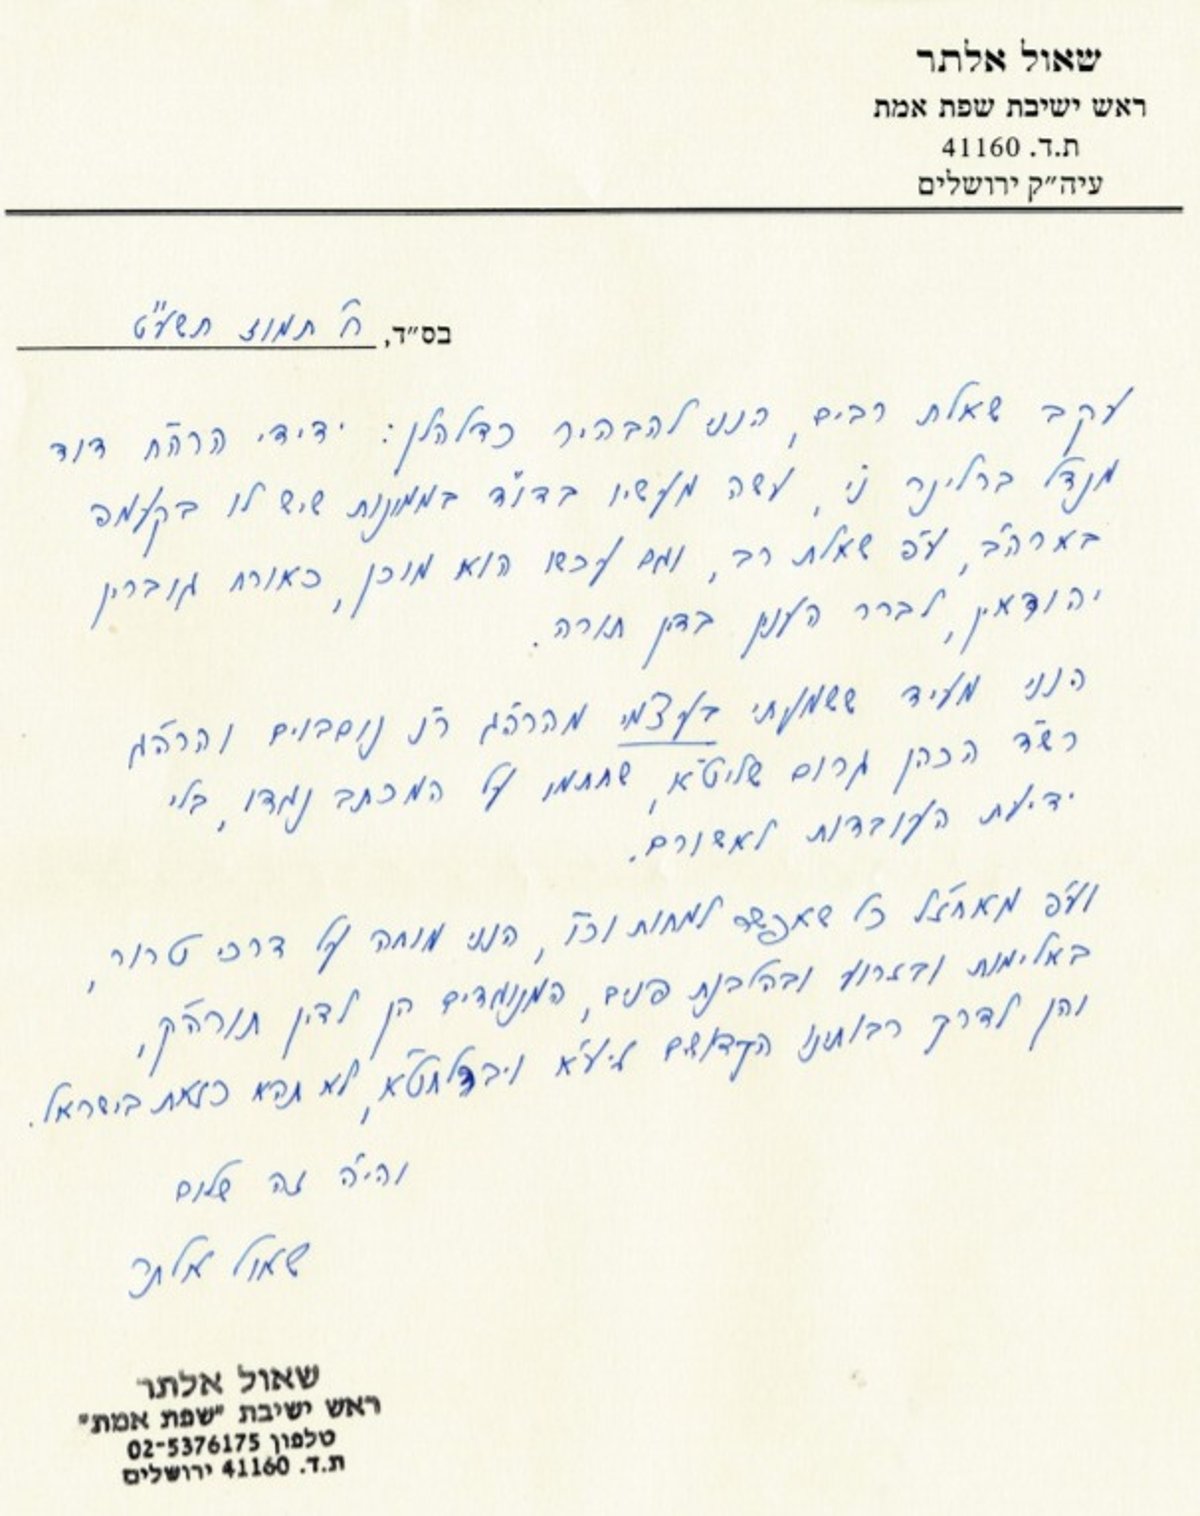 שאול אלתר
ראש ישיבת שפת אמת
ת.ד. 41160
עיה״ק ירושלים
בס״ד, ח' תמוז תשע"ט
עקב שאלת רבים, הנני להבהיר כדלהלן: ידידי הרה"ח דוד
מנדל ברלינר ני', עשה מעשיו בדו"ד בממונות שיש לו בקעמפ
בארה"ב, ע"פ שאלת רב, וגם עכשו הוא מוכן, כאורח גוברין
יהודאין, לברר הענין בדין תורה.
הנני מעיד ששמעתי בעצמי מהרה"ג ר"נ נוסבוים והרה"ג
רש"ד הכהן גרוס שליט"א, שחתמו על המכתב נגדו, בלי
ידיעת העובדות לאשורם.
וע"פ מאחז"ל כל שאפשר למחות וכו', הנני מוחה על דרכי טרור,
באלימות ובזרוע ובהלבנת פנים, המנוגדים הן לדין תוה"ק,
והן לדרך רבותינו הקדושים זיע"א ויבדלחט"א, לא תהא כזאת בישראל.
והי' זה שלום
שאול אלתר
שאול אלתר
ראש ישיבת "שפת אמת"
טלפון 02-5376175
ת.ד. 41160 ירושלים